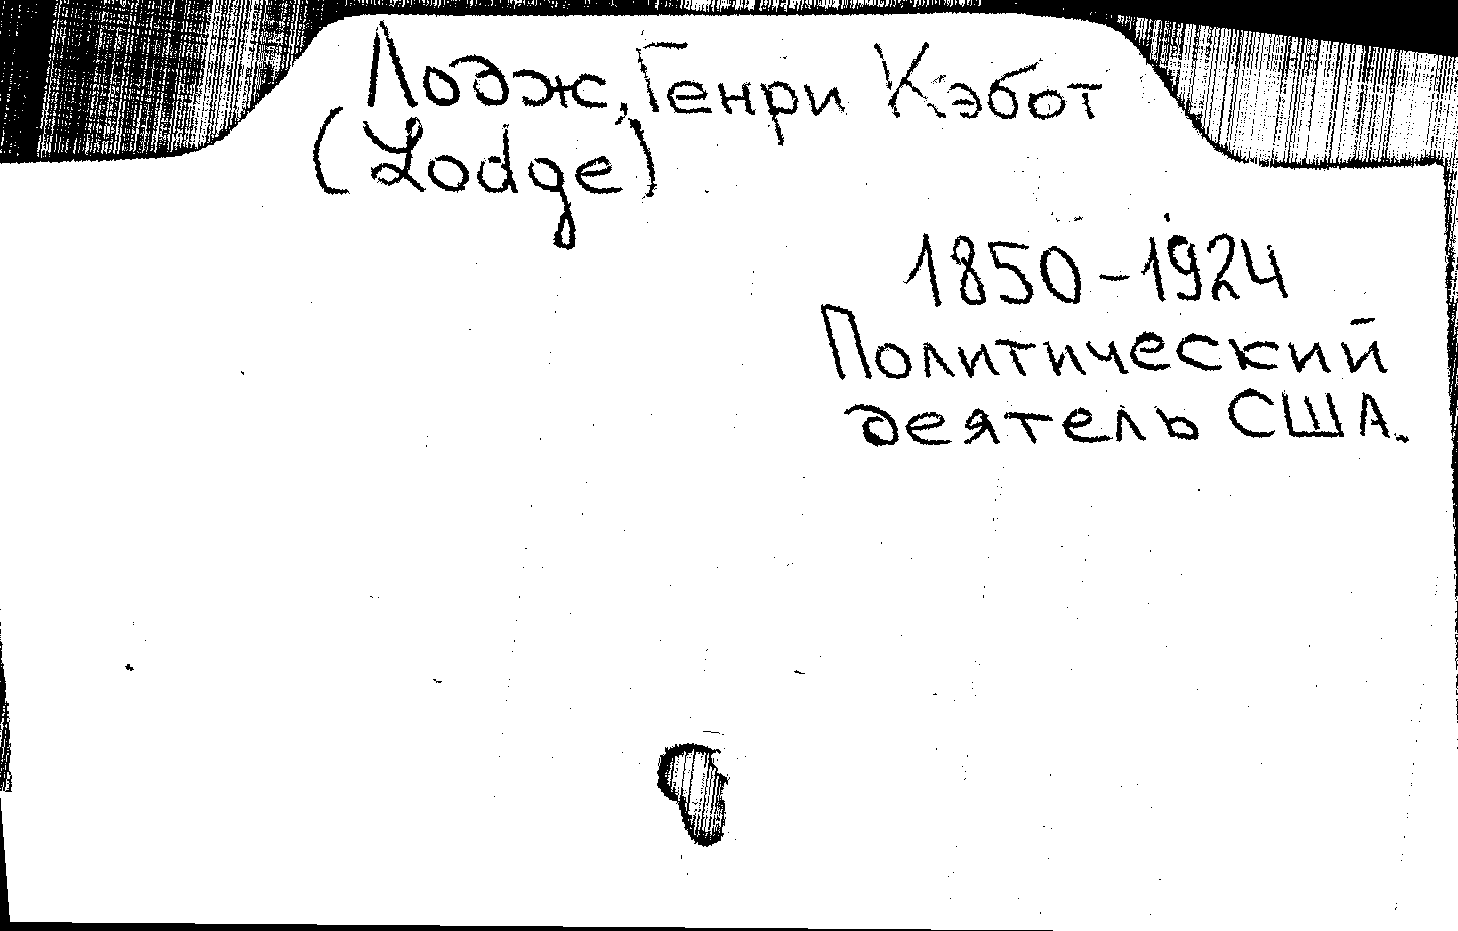 Лодж, Генри Кэбот
(Lodge)
1850-1924
Политический
деятель США.